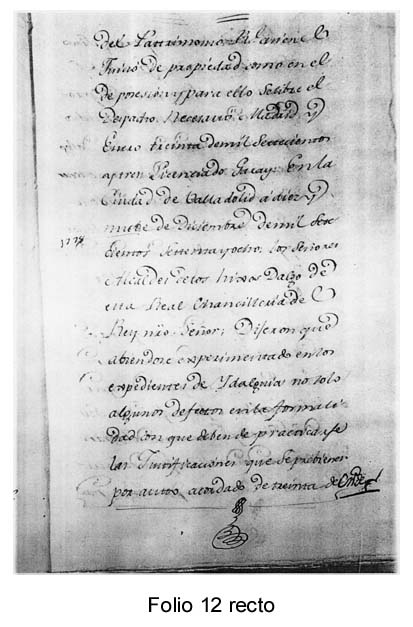 del Pattrimonio R.l asi en el
Juicio de propiedad como en el
de posesion, y para ello se libre el
Despacho Necesario: Madrid y
Enero treinta de mil Settecientos
Lizenciado En la
Ciudad de Valladolid a diez y
nuebe de Diziembre de mil Sete
cientos Settenta y ocho: los Señores
1778
Alcaldes de los hixos Dalgo de
esta Real Chancilleria de el
Rey nŕo Señor; Dixeron que
abiendose experimentado en los
expedientes de Ydalguia no solo
algunos defectos en la formali
dad con que deben de practicarse
las Justificaciones que se prebienen
por autto acordado de treinta de
Folio 12 recto